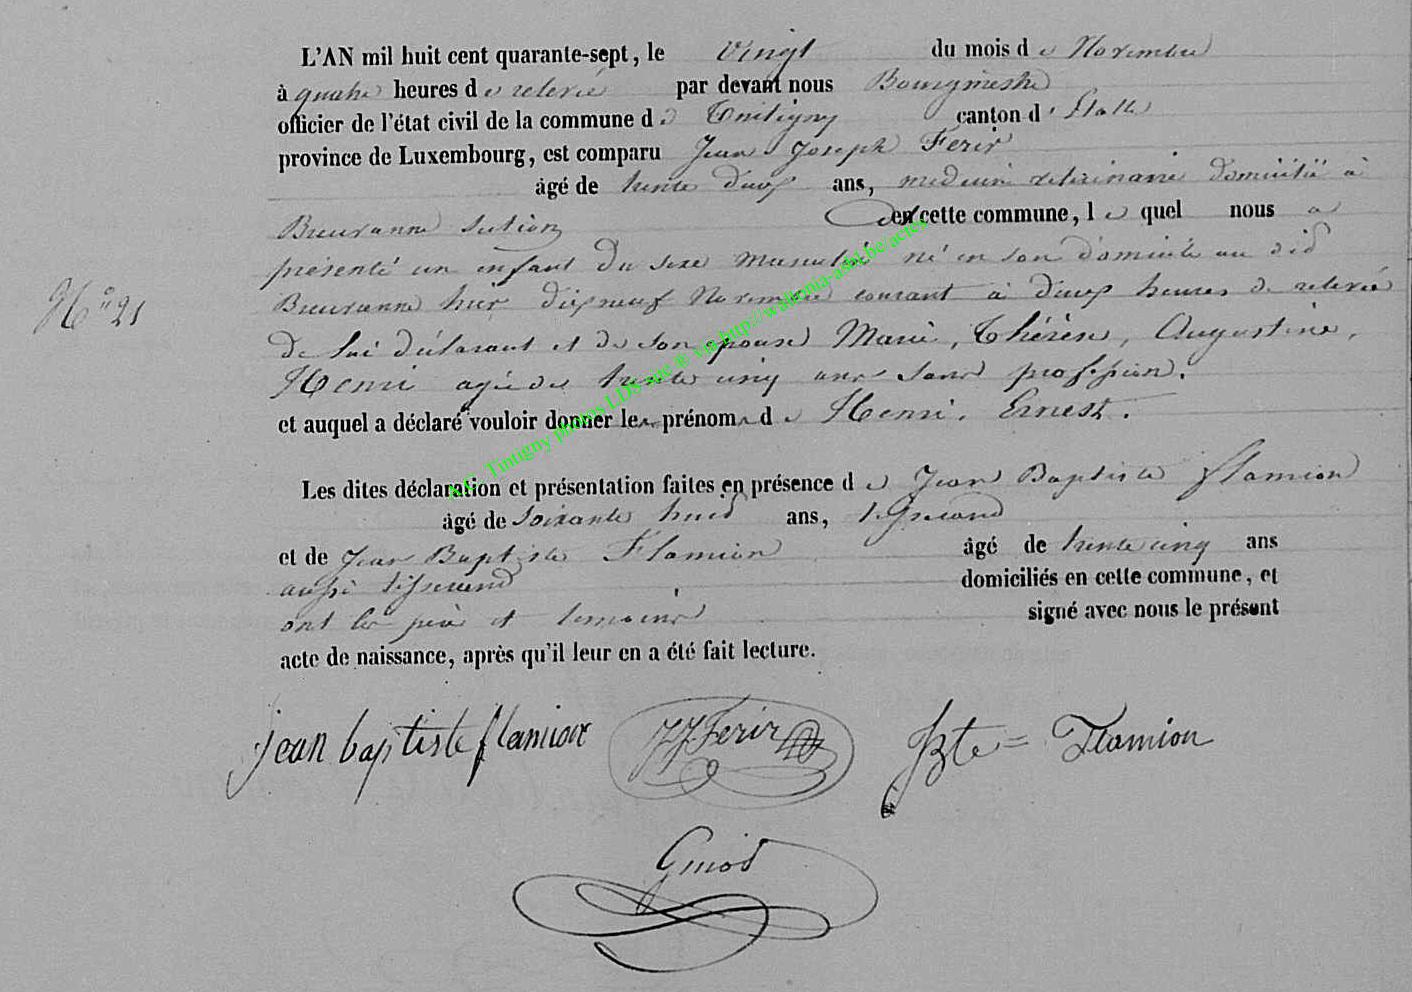 L'AN mil huit cent quarante-sept, le vingt du mois de Novembre
à quatre heures de relevé par devant nous Bourgmestre
officier de l'état civil de la commune de Tintigny canton d'Etalle
province de Luxembourg, est comparu Jean Joseph Ferir
âgé de trente deux ans, medecin veterinaire domicilié à
Breuvanne section de cette commune, le quel nous a
présenté un enfant du sexe masculin né en son domicile au did
Breuvanne hier dixneuf Novembre courant à deux heures de relevée
de lui déclarant et de son épouse Marie, Thérèse, Augustine,
Henri agée de trente cinq ans sans profession.
et auquel a déclaré vouloir donner les prénoms de Henri, Ernest.
N° 21
Les dites déclaration et présentation faites en présence de Jean Baptiste flamion
âgé de soixante huit ans, tisserand
et de Jean Baptiste Flamion âgé de trente cinq ans
aussi tisserand domiciliés en cette commune, et
ont les père et temoins signé avec nous le présent
acte de naissance, après qu'il leur en a été fait lecture.
jean baptiste flamion JJ Ferir JBte = Flamion
A.C. Tintigny photos LDS site ® via http://wallonia-asbl.be/actes